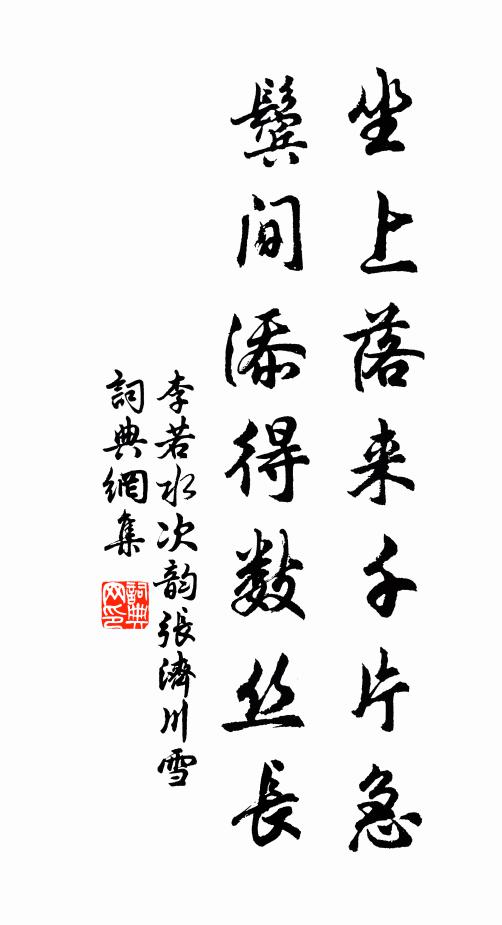 坐上落来千片急
鬓间添得数丝长
李若水次韵張濟川雪
詞典網集
詞典网印